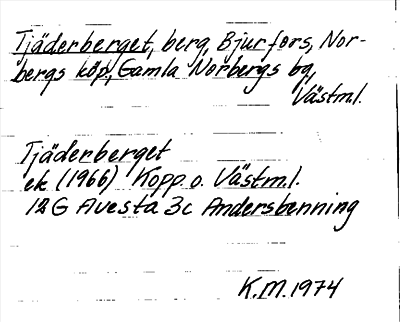 Tjäderberget, berg, Bjurfors, Nor-
bergs köp, Gamla Norbergs bg,
Västml.
Tjäderberget
ek (1966) Kopp. o. Västm.l.
12G Avesta 3c Andersbenning
K.M. 1974